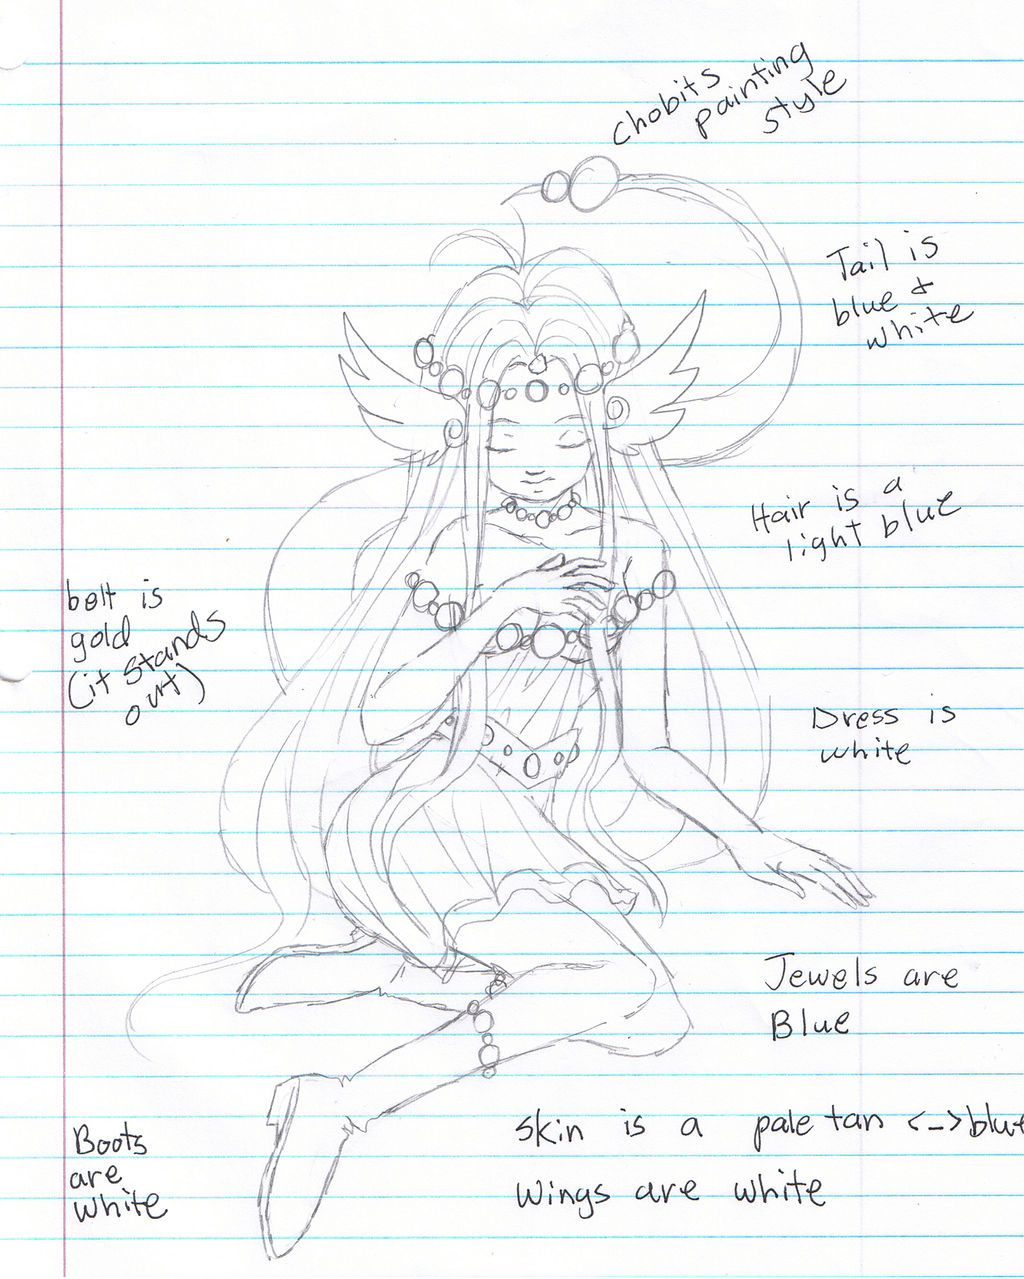 chobits
painting
style
Tail is
blue &
white
Hair is a
light blue
belt is
gold
(it stands
out)
Dress is
white
Jewels are
Blue
Boots
are
white
skin is a pale tan <-> blue
Wings are white